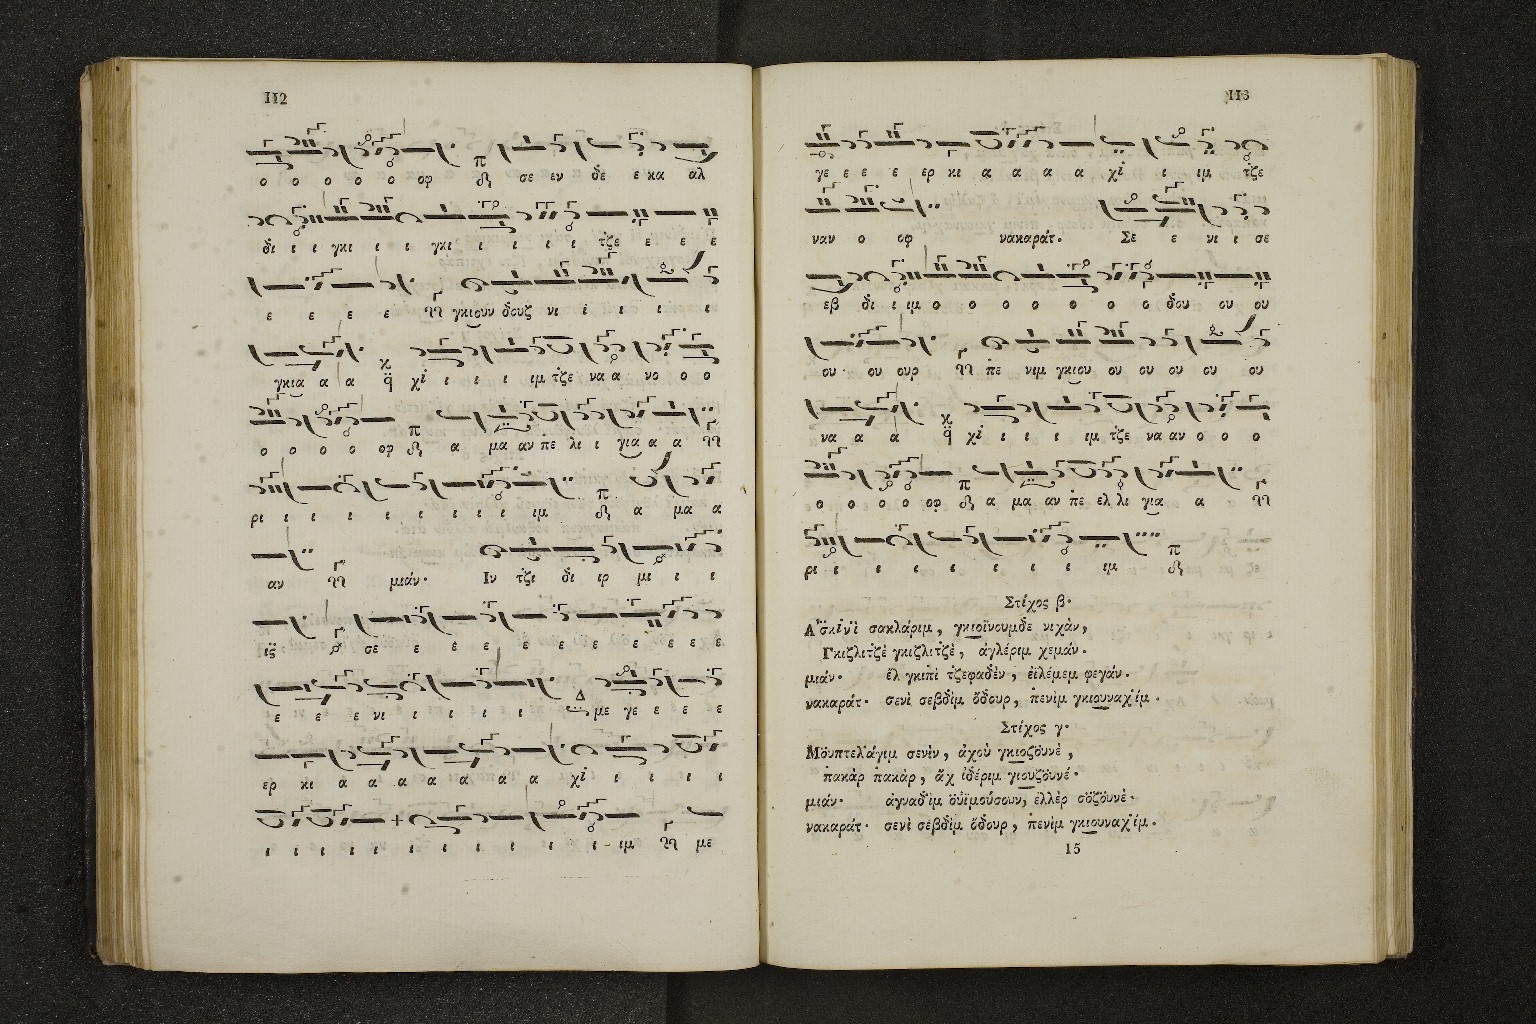 112
ο ο ο ο ο οφ σε εν δε ε κα αλ
δι ι ι γκι ι ι γκι ι ι ι ι τζε ε ε ε
ε ε ε ε γκιουν δουζ νι ι ι ι ι
γκια α α χι ι ι ι ιμ τζε να α νο ο ο
ο ο ο ο οφ α μα αν πε λι ι για α α
ρι ι ι ι ι ι ι ι ι ιμ α μα α
αν μιάν· Ιν τζι δι ιρ μι ι ι
ιξ σε ε ε ε ε ε ε ε ε ε
ε ε ε νι ι ι ι ι με γε ε ε ε
ερ κι α α α α α α α χι ι ι ι ι
ι ι ι ι ι ι ι ι ι ι ι ι - ιμ με
113
γε ε ε ε ερ κι α α α α χι ι ιμ τζε
ναν ο οφ νακαράτ. Σε ε νι ι σε
εβ δι ι ιμ ο ο ο ο ο ο ο δου ου ου
ου ου ουρ πε νιμ γκιου ου ου ου ου ου
να α α χι ι ι ι ιμ τζε να αν ο ο ο
ο ο ο ο οφ α μα αν πε ελ λι για α
ρι ι ι ι ι ι ι ι ιμ
Στίχος β·
Α̈σκίνϊ σακλάριμ, γκιοϊνουμδε νιχάν,
Γκιζλιτζὲ γκιζλιτζὲ, ἀγλέριμ χεμάν.
μιάν· ἐλ γκιπὶ τζεφαδὲν, εϊλέμεμ φεγάν.
νακαράτ· σενὶ σεβδὶμ ὄδουρ, πενὶμ γκιουναχίμ.
Στίχος γ·
Μὄυπτελἄγιμ σενὶν, ἀχοὺ γκιοζὄυνὲ,
πακὰρ πακὰρ, ἂχ ἰδέριμ γιουζὄυνέ·
μιάν· ἀγναδὶμ ὄϋϊμούσουν, ελλὲρ σὄζὄυνέ·
νακαράτ· σενὶ σέβδὶμ ὄδουρ, πενὶμ γκιουναχίμ.
15